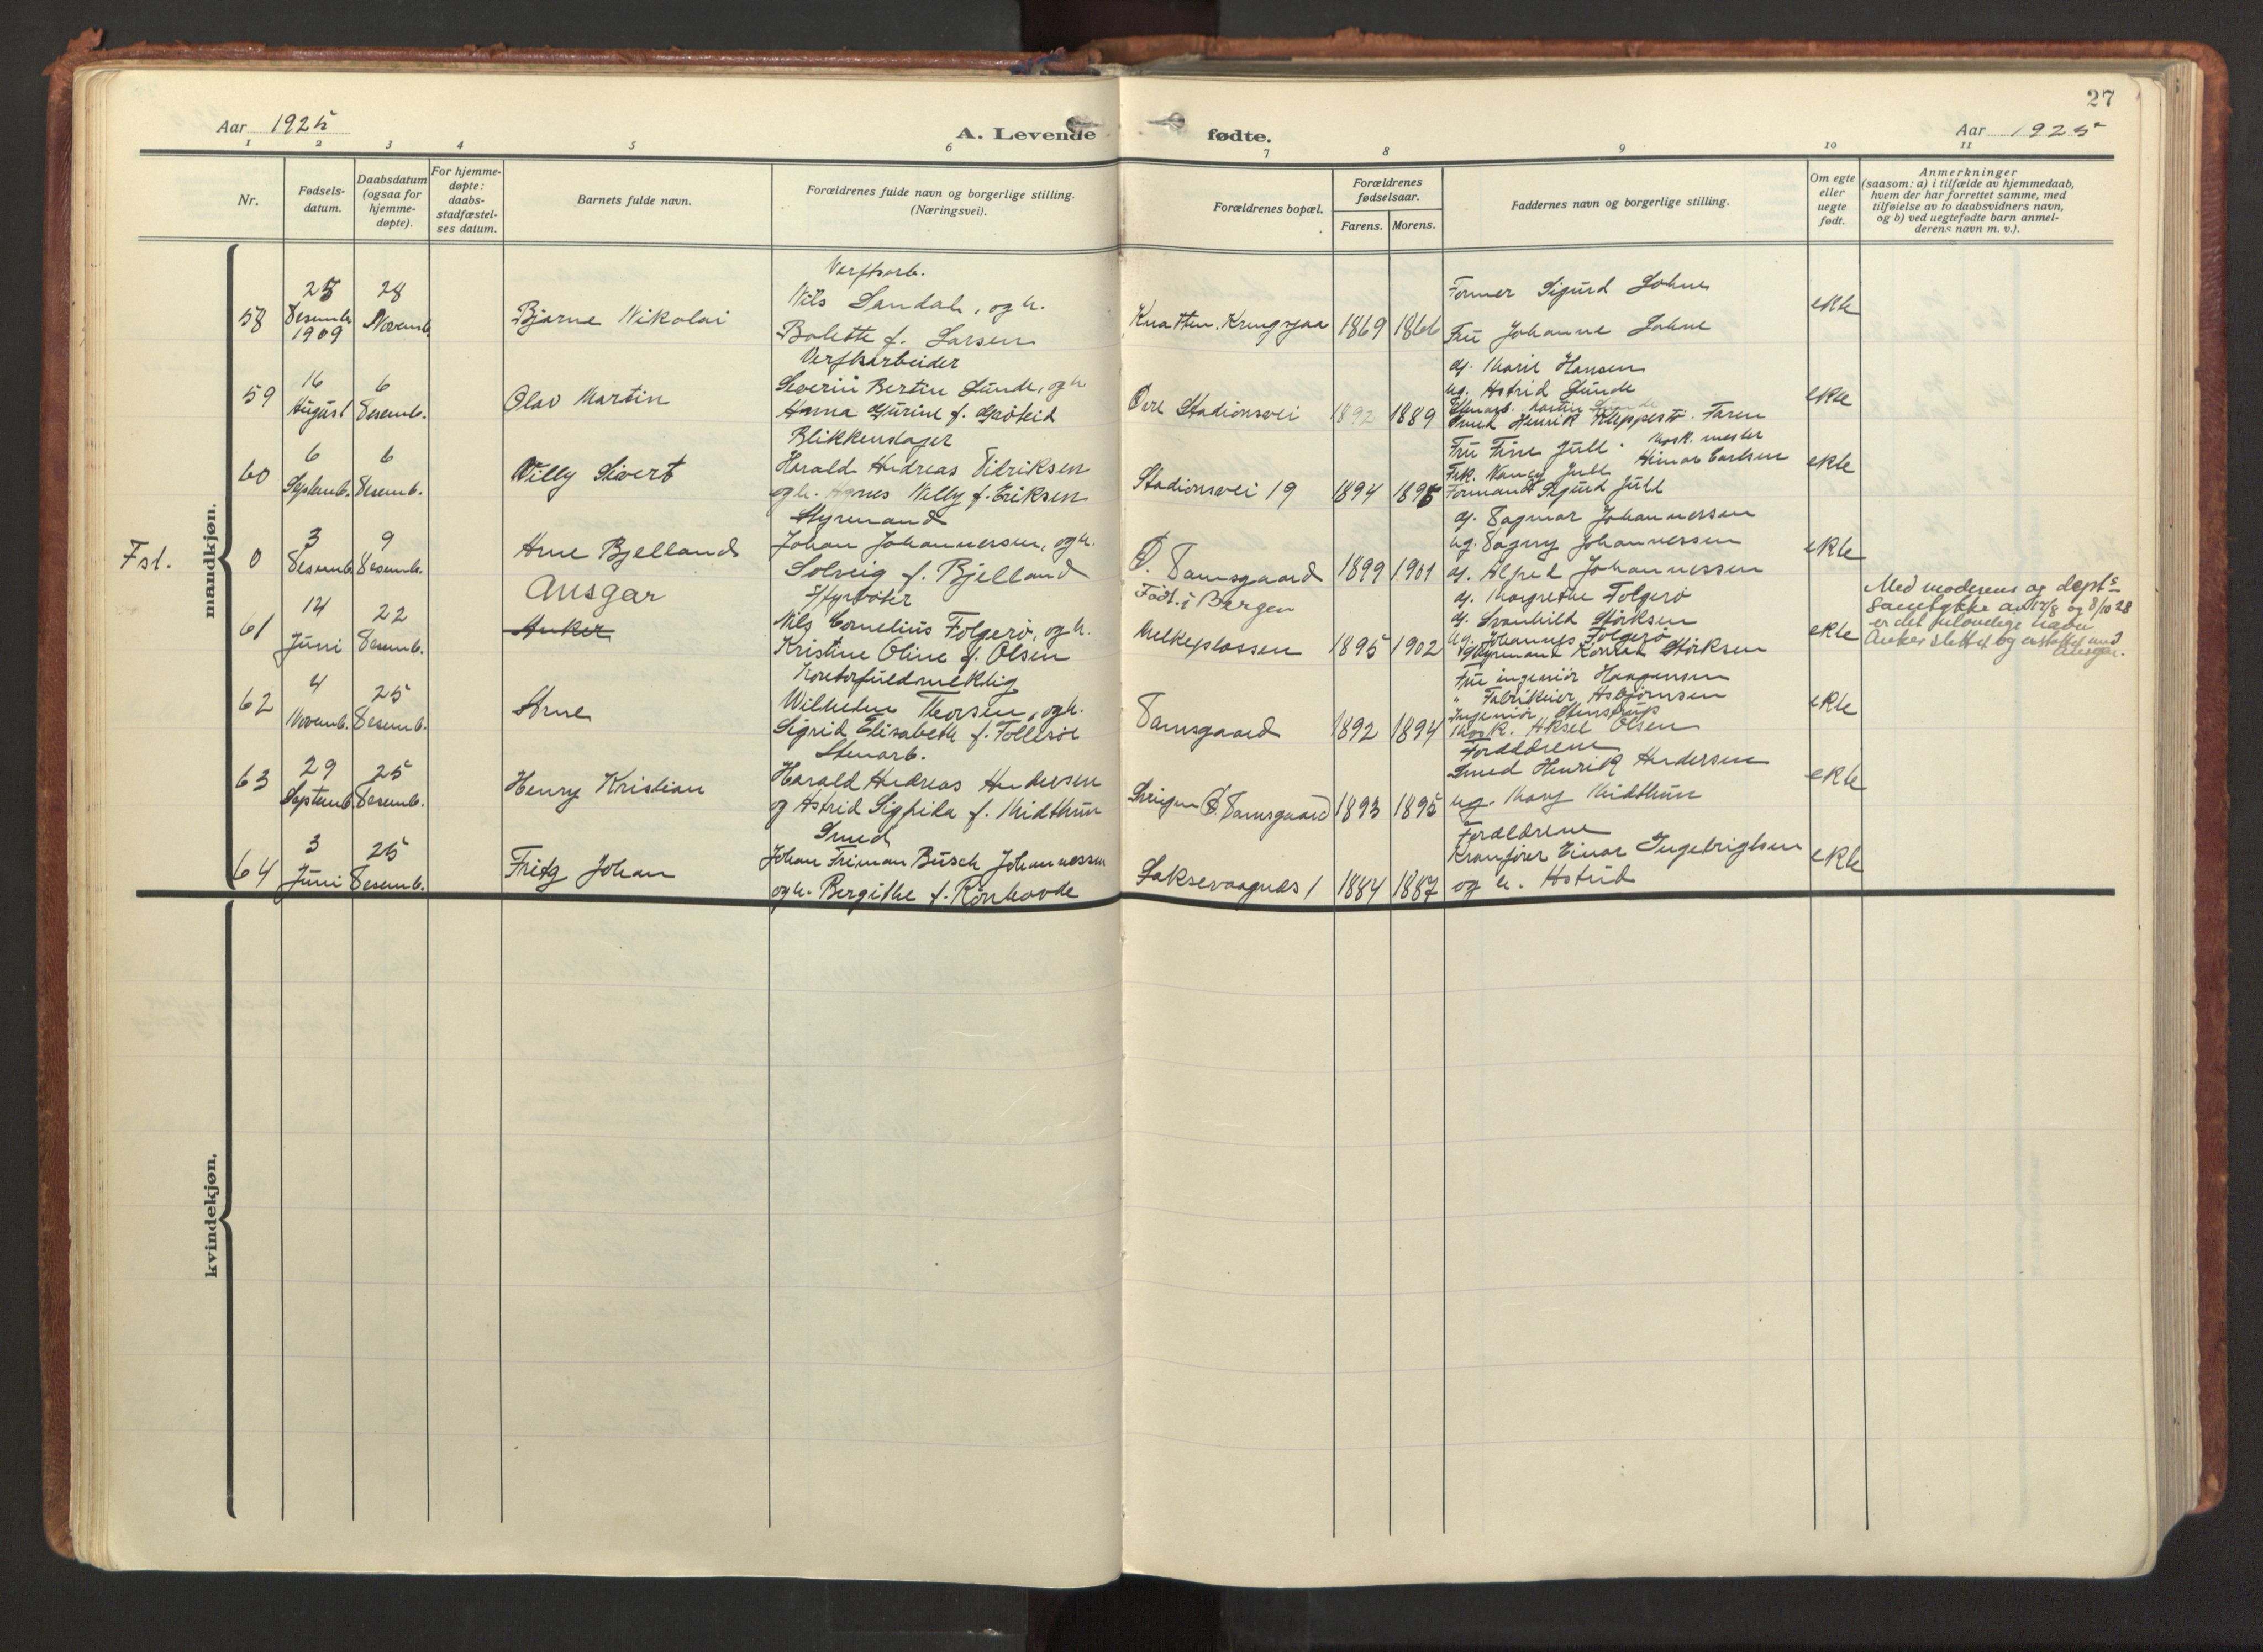 27
Aar 1925
A. Levende
fødte.
Aar 1925
1 2 3 4 5 6 7 8 9 10 11
Nr.
Fødsels-
datum.
Daabsdatum
(ogsaa for
hjemme-
døpte).
For hjemme-
døpte:
daabs-
stadfæstel-
ses datum.
Barnets fulde navn.
Forældrenes fulde navn og borgerlige stilling.
(Næringsvei).
Forældrenes bopæl.
Forældrenes
fødselsaar.
Farens. Morens.
Faddernes navn og borgerlige stilling.
Om egte
eller
uegte
født.
Anmerkninger
(saasom: a) i tilfælde av hjemmedaab,
hvem der har forrettet samme, med
tilføielse av to daabsvidners navn,
og b) ved uegtefødte barn anmel-
derens navn m. v.).
mandkjøn.
58
25
Desemb.
1909
28
Novemb.
Bjarne Nikolai
Verftsarb.
Nils Sandal, og h.
Bolette f. Larsen
Knatten, Kringsjaa
1869 1866
Former Sigurd
Fru Johanne
ekte
59
16
August
6
Desemb.
Olav Martin
Verftsarbeider
Severin Bertin Sunde, og h.
Anna Gurine f.
Øvre Stadionsvei
1892 1889
Marie Hansen
Ug. Astrid Sunde
Smed Henrik Kleppestø. Faren
ekte
60
6
Septemb.
6
Desemb.
Willy Sivert
Blikkenslager
Harald Andreas Didriksen
og h. Agnes Willy f. Eriksen
Stadionsvei 19
1894 1895
Fru Fine Jull. Mask. mester
Frk. Nancy Jull Hilmar Carlsen
Formand Sigurd Jull
ekte
Fst.
0
3
Desemb.
9
Desemb.
Arne Bjelland
Styrmand
Johan Johannessen, og h.
Solveig f. Bjelland
Ø. Damsgaard
Født i Bergen
1899 1901
Dagmar Johannessen
Ug. Dagny Johannessen
Alfred Johannessen
ekte
61
14
Juni
22
Desemb.
Ansgar
Anker
Fyrbøter
Nils Cornelius Folgerø, og h.
Kristine Oline f. Olsen
Melkeplassen
1895 1902
Margrethe Folgerø
Svanhild Størksen
Ug. Johannes Folgerø
Styrmand Konrad Størksen
ekte
Med moderens og dept.s
samtykke av 12/8 og 8/10 28
er det fulovelige navn
Anker slettet og erstattet med
Ansgar.
62
4
Novemb.
25
Desemb.
Arne
Kontorfuldmektig
Wilhelm Thorsen, og h.
Sigrid Elisabeth f. Follesøe
Damsgaard
1892 1894
Fru ingeniør Haagensen
" Fabrikeier Asbjørnsen
Ingeniør Stenstrup
Mask. Aksel Olsen
ekte
63
29
Septemb.
25
Desemb.
Henry Kristian
Stenarb.
Harald Andreas Andersen
og Astrid Sigfrida f. Midthun
Svingen Ø. Damsgaard
1893 1895
Forældrene
Smed Henrik Andersen
Ug. Mary Midthun
ekte
64
3
Juni
25
Desemb.
Fritz Johan
Smed
Johan Friman Busch Johannessen
og h. Bergithe f. Rønhovde
Laksevaagnes 1
1884 1887
Forældrene
Kranfører Einar Ingebrigtsen
og h. Astrid
ekte
kvindekjøn.